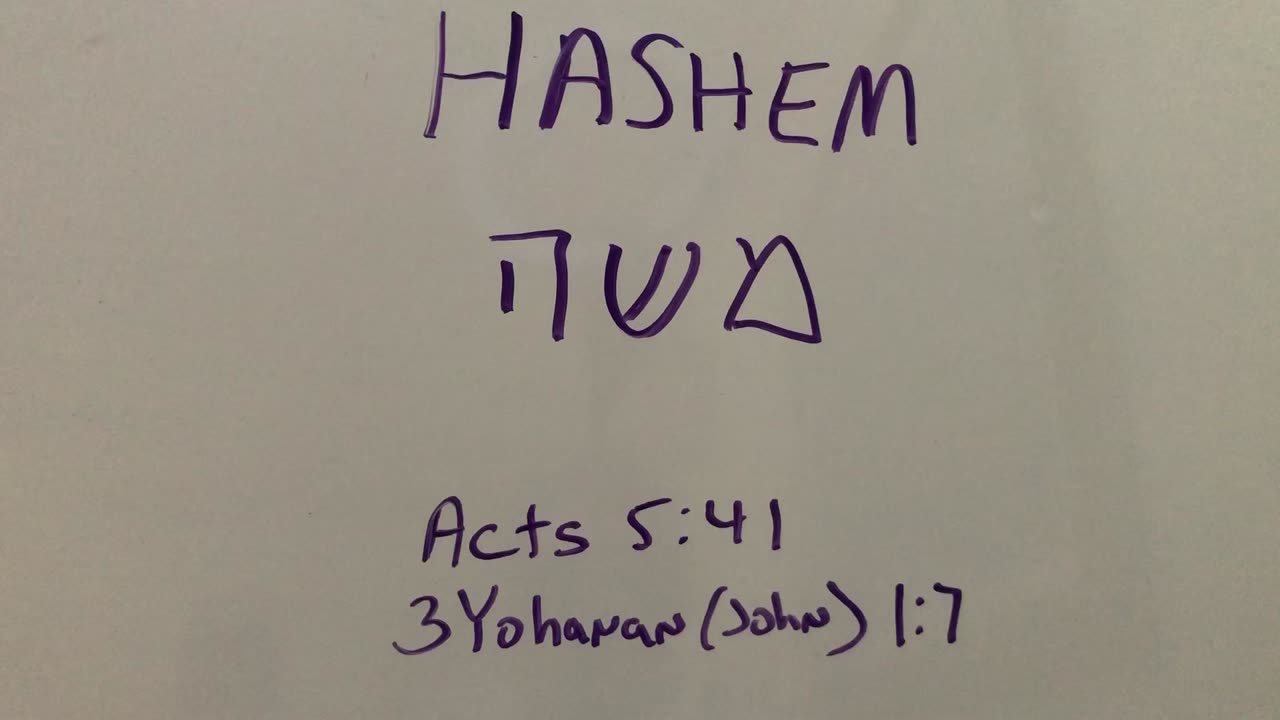 HASHEM
משה
Acts 5:41
3 Yohanan (John) 1:7